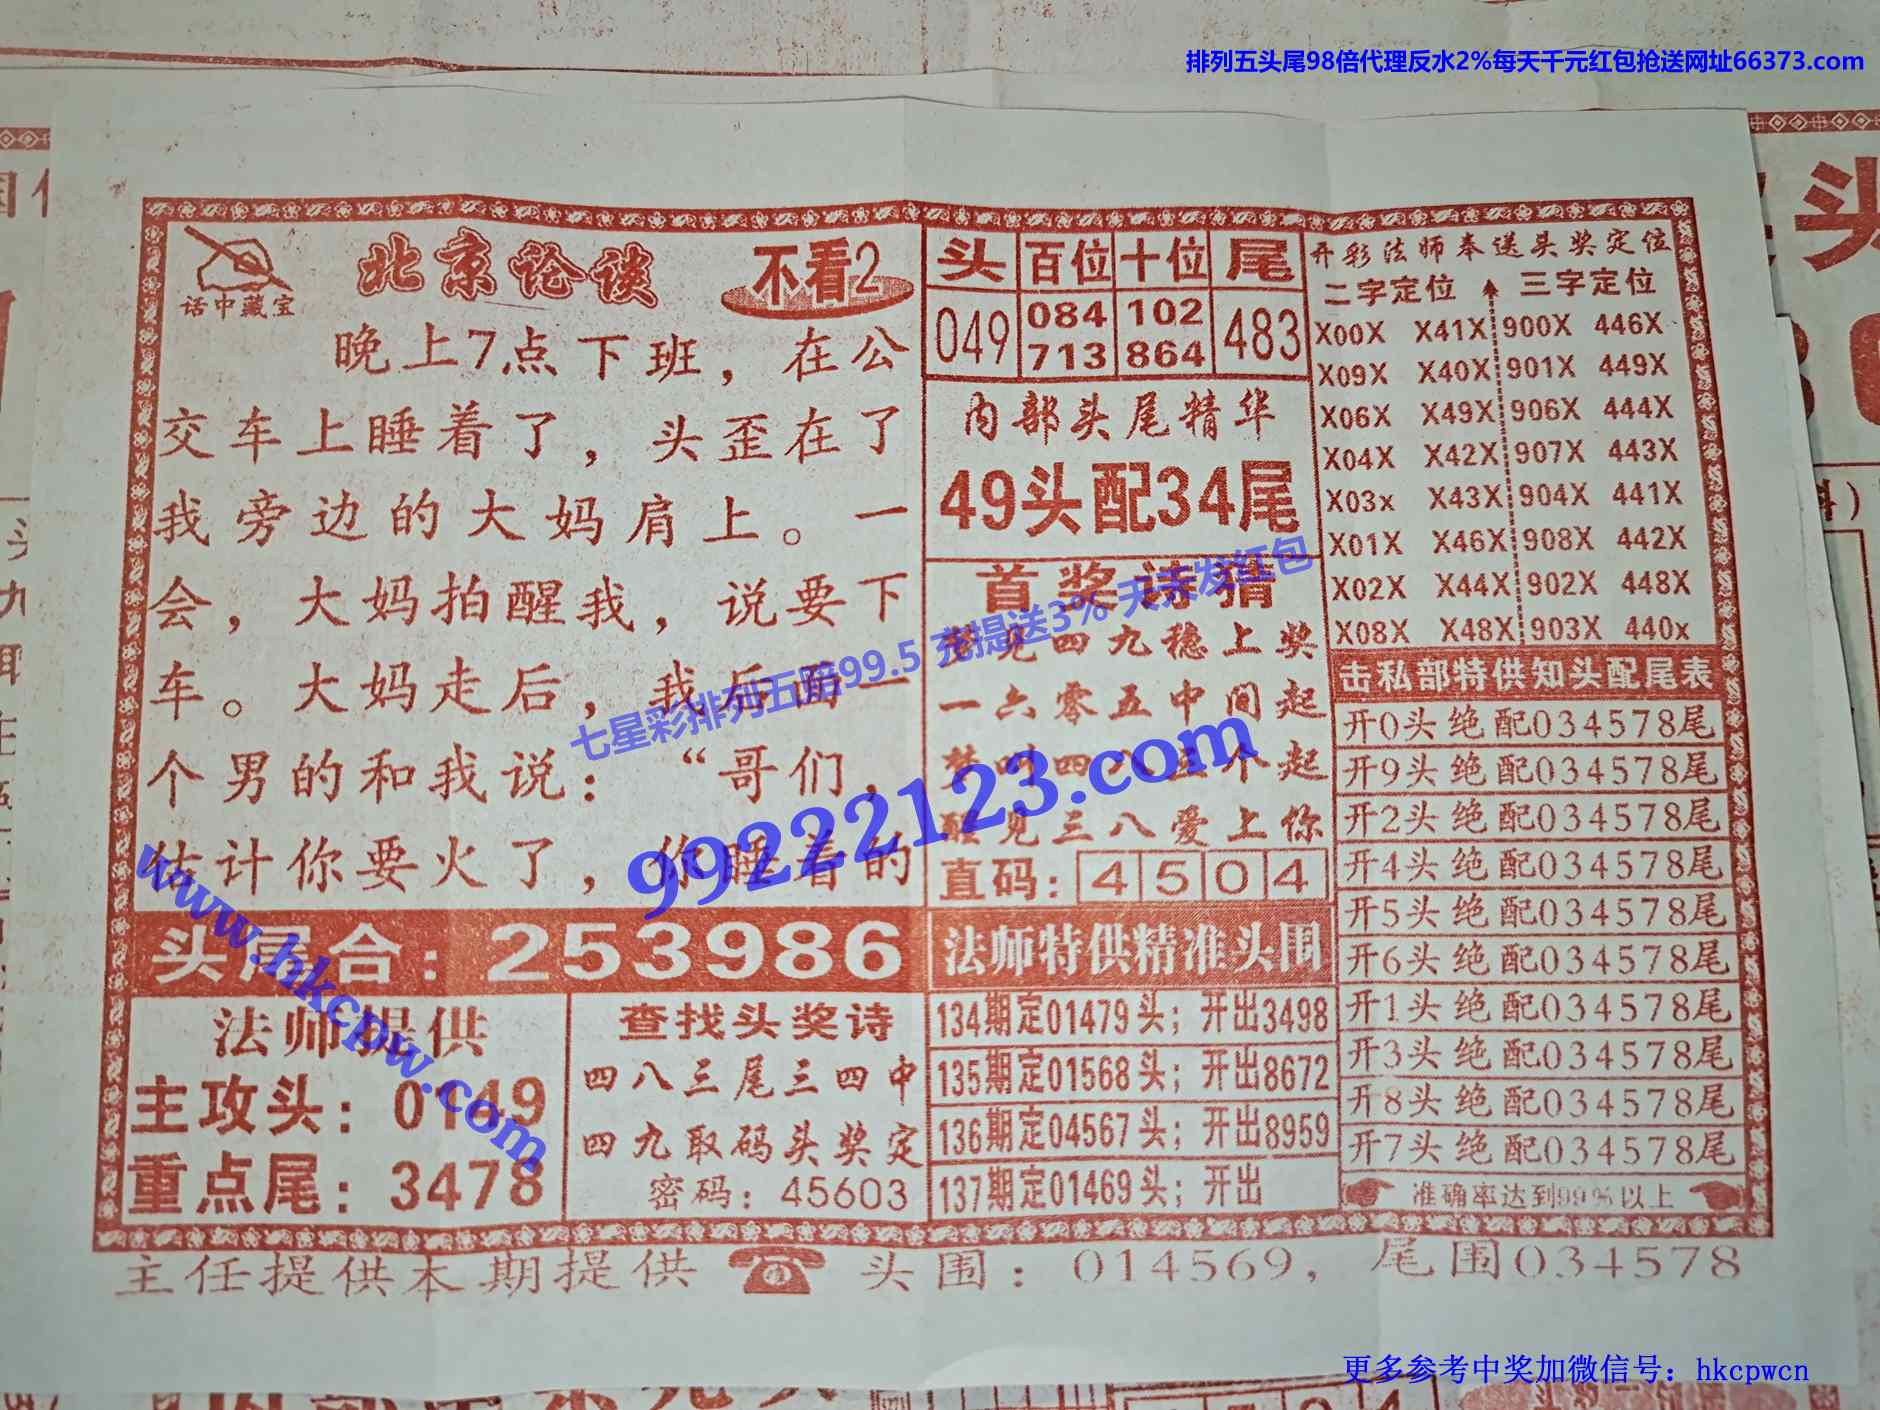 排列五头尾98倍代理反水2%每天千元红包抢送网址66373.com
话中藏宝
北京论谈
不看2
晚上7点下班，在公
交车上睡着了，头歪在了
我旁边的大妈肩上。一
会，大妈拍醒我，说要下
车。大妈走后，我后面一
个男的和我说：“哥们，
估计你要火了，你睡着的
头尾合：253986
法师提供
主攻头：0149
重点尾：3478
查找头奖诗
四八三尾三四中
四九取码头奖定
密码：45603
头 百位 十位 尾
049 084 102 483
713 864
内部头尾精华
49头配34尾
首奖诗猜
见四九稳上奖
一六零五中间起
梦叫四八三个起
醒见三八爱上你
直码：4504
法师特供精准头围
134期定01479头；开出3498
135期定01568头；开出8672
136期定04567头；开出8959
137期定01469头；开出
开彩法师奉送头奖定位
二字定位 三字定位
X00X X41X 900X 446X
X09X X40X 901X 449X
X06X X49X 906X 444X
X04X X42X 907X 443X
X03x X43X 904X 441X
X01X X46X 908X 442X
X02X X44X 902X 448X
X08X X48X 903X 440x
击私部特供知头配尾表
开0头绝配034578尾
开9头绝配034578尾
开2头绝配034578尾
开4头绝配034578尾
开5头绝配034578尾
开6头绝配034578尾
开1头绝配034578尾
开3头绝配034578尾
开8头绝配034578尾
开7头绝配034578尾
准确率达到99%以上
主任提供本期提供 头围：014569，尾围034578
七星彩排列五赔99.5 充提送3% 天天发红包
99222123.com
www.hkcpw.com
更多参考中奖加微信号：hkcpwcn